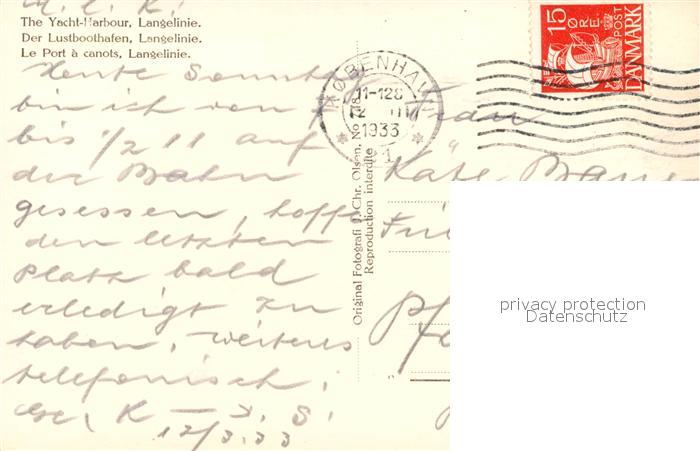 M. L. K!
The Yacht-Harbour, Langelinie.
Der Lustboothafen, Langelinie.
Le Port à canots, Langelinie.
Heute Sonntag
bin ich von
bis 1/2 11 auf
der Bahn
gesessen, hoffe
den letzten
Platz bald
erledigt zu
haben, weiteres
telefonisch!
K
12/3.33
Original Fotografi J. Chr. Olsen, No.
Reproduction interdite
KØBENHAVN
11-12
1933
15
ØRE
POST
DANMARK
Frau
Käte
privacy protection
Datenschutz